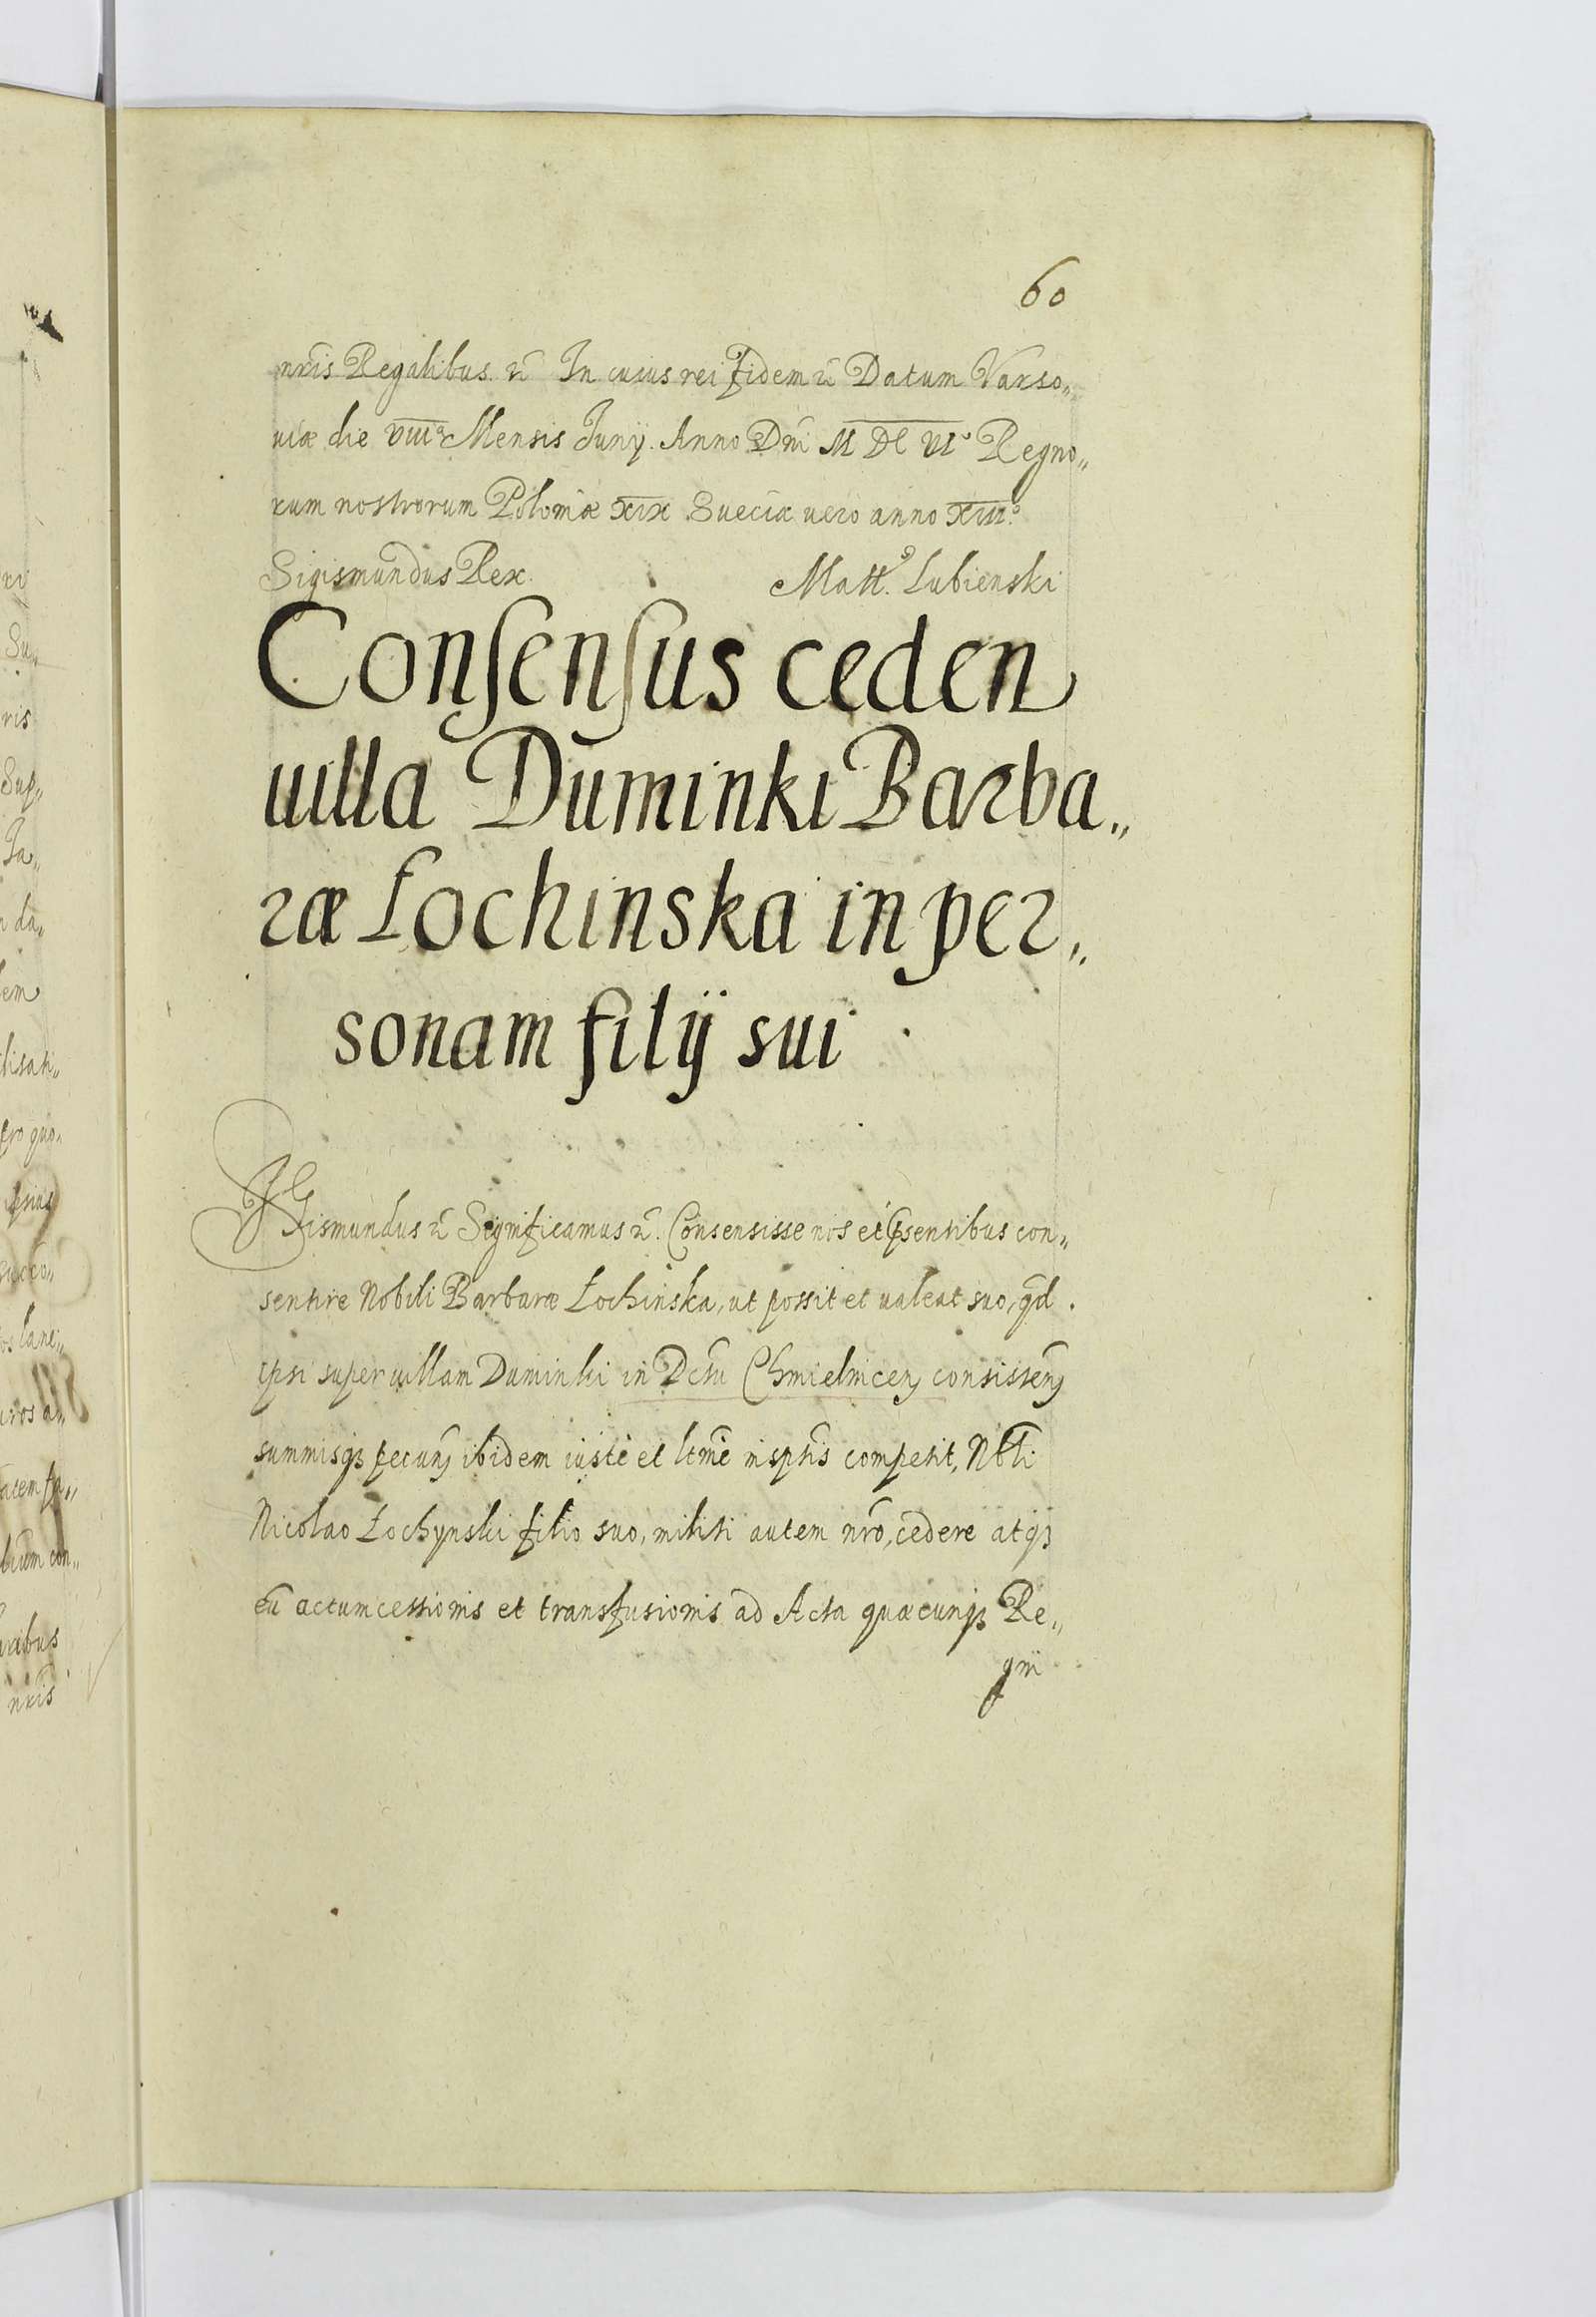 60
nris Regalibus. etc In cuius rei fidem etc Datum Varso„
uiæ die VIIIa Mensis Junij. Anno Dni M DC VIo Regno„
rum nostrorum Poloniæ XIX Sueciæ uero anno XIIIo
Sigismundus Rex. Matt. Lubienski
Consensus ceden
uilla Duminki Barba„
ræ Łochinska in per„
sonam filij sui
Sigismundus etc Significamus etc. Consensisse nos et psentibus con„
sentire Nobili Barbaræ Łochinska, ut possit et ualeat suo, qd
ipsi super uillam Duminki in Dctu Chmielnicen consisten
summisq pecun ibidem iuste et ltme insptis competit, Nbli
Nicolao Łochynski filio suo, militi autem nro, cedere atq
eu actum cessionis et transfusionis ad Acta quæcunq Re„
gni